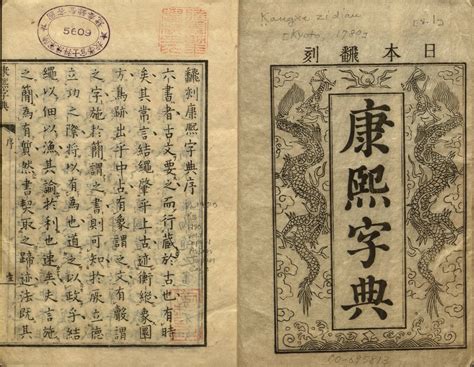 Kangxi zidian
(Kyoto, 1780)
日本飜刻
康熙字典
5609
飜刻康熙字典序
六書者古文要之而行藏於古也有時
矣其常言結繩肇乎上古迹衡縱象圓
方鳥跡出乎中古有像謂之文有謂
之字施於簡謂之書則可知於厥立德
立功之際將以有為也道之以政乎結
繩以佃以漁其諭於利也速矣史言施
之簡為有然書契取之歸迹法既其
康熙字典
序